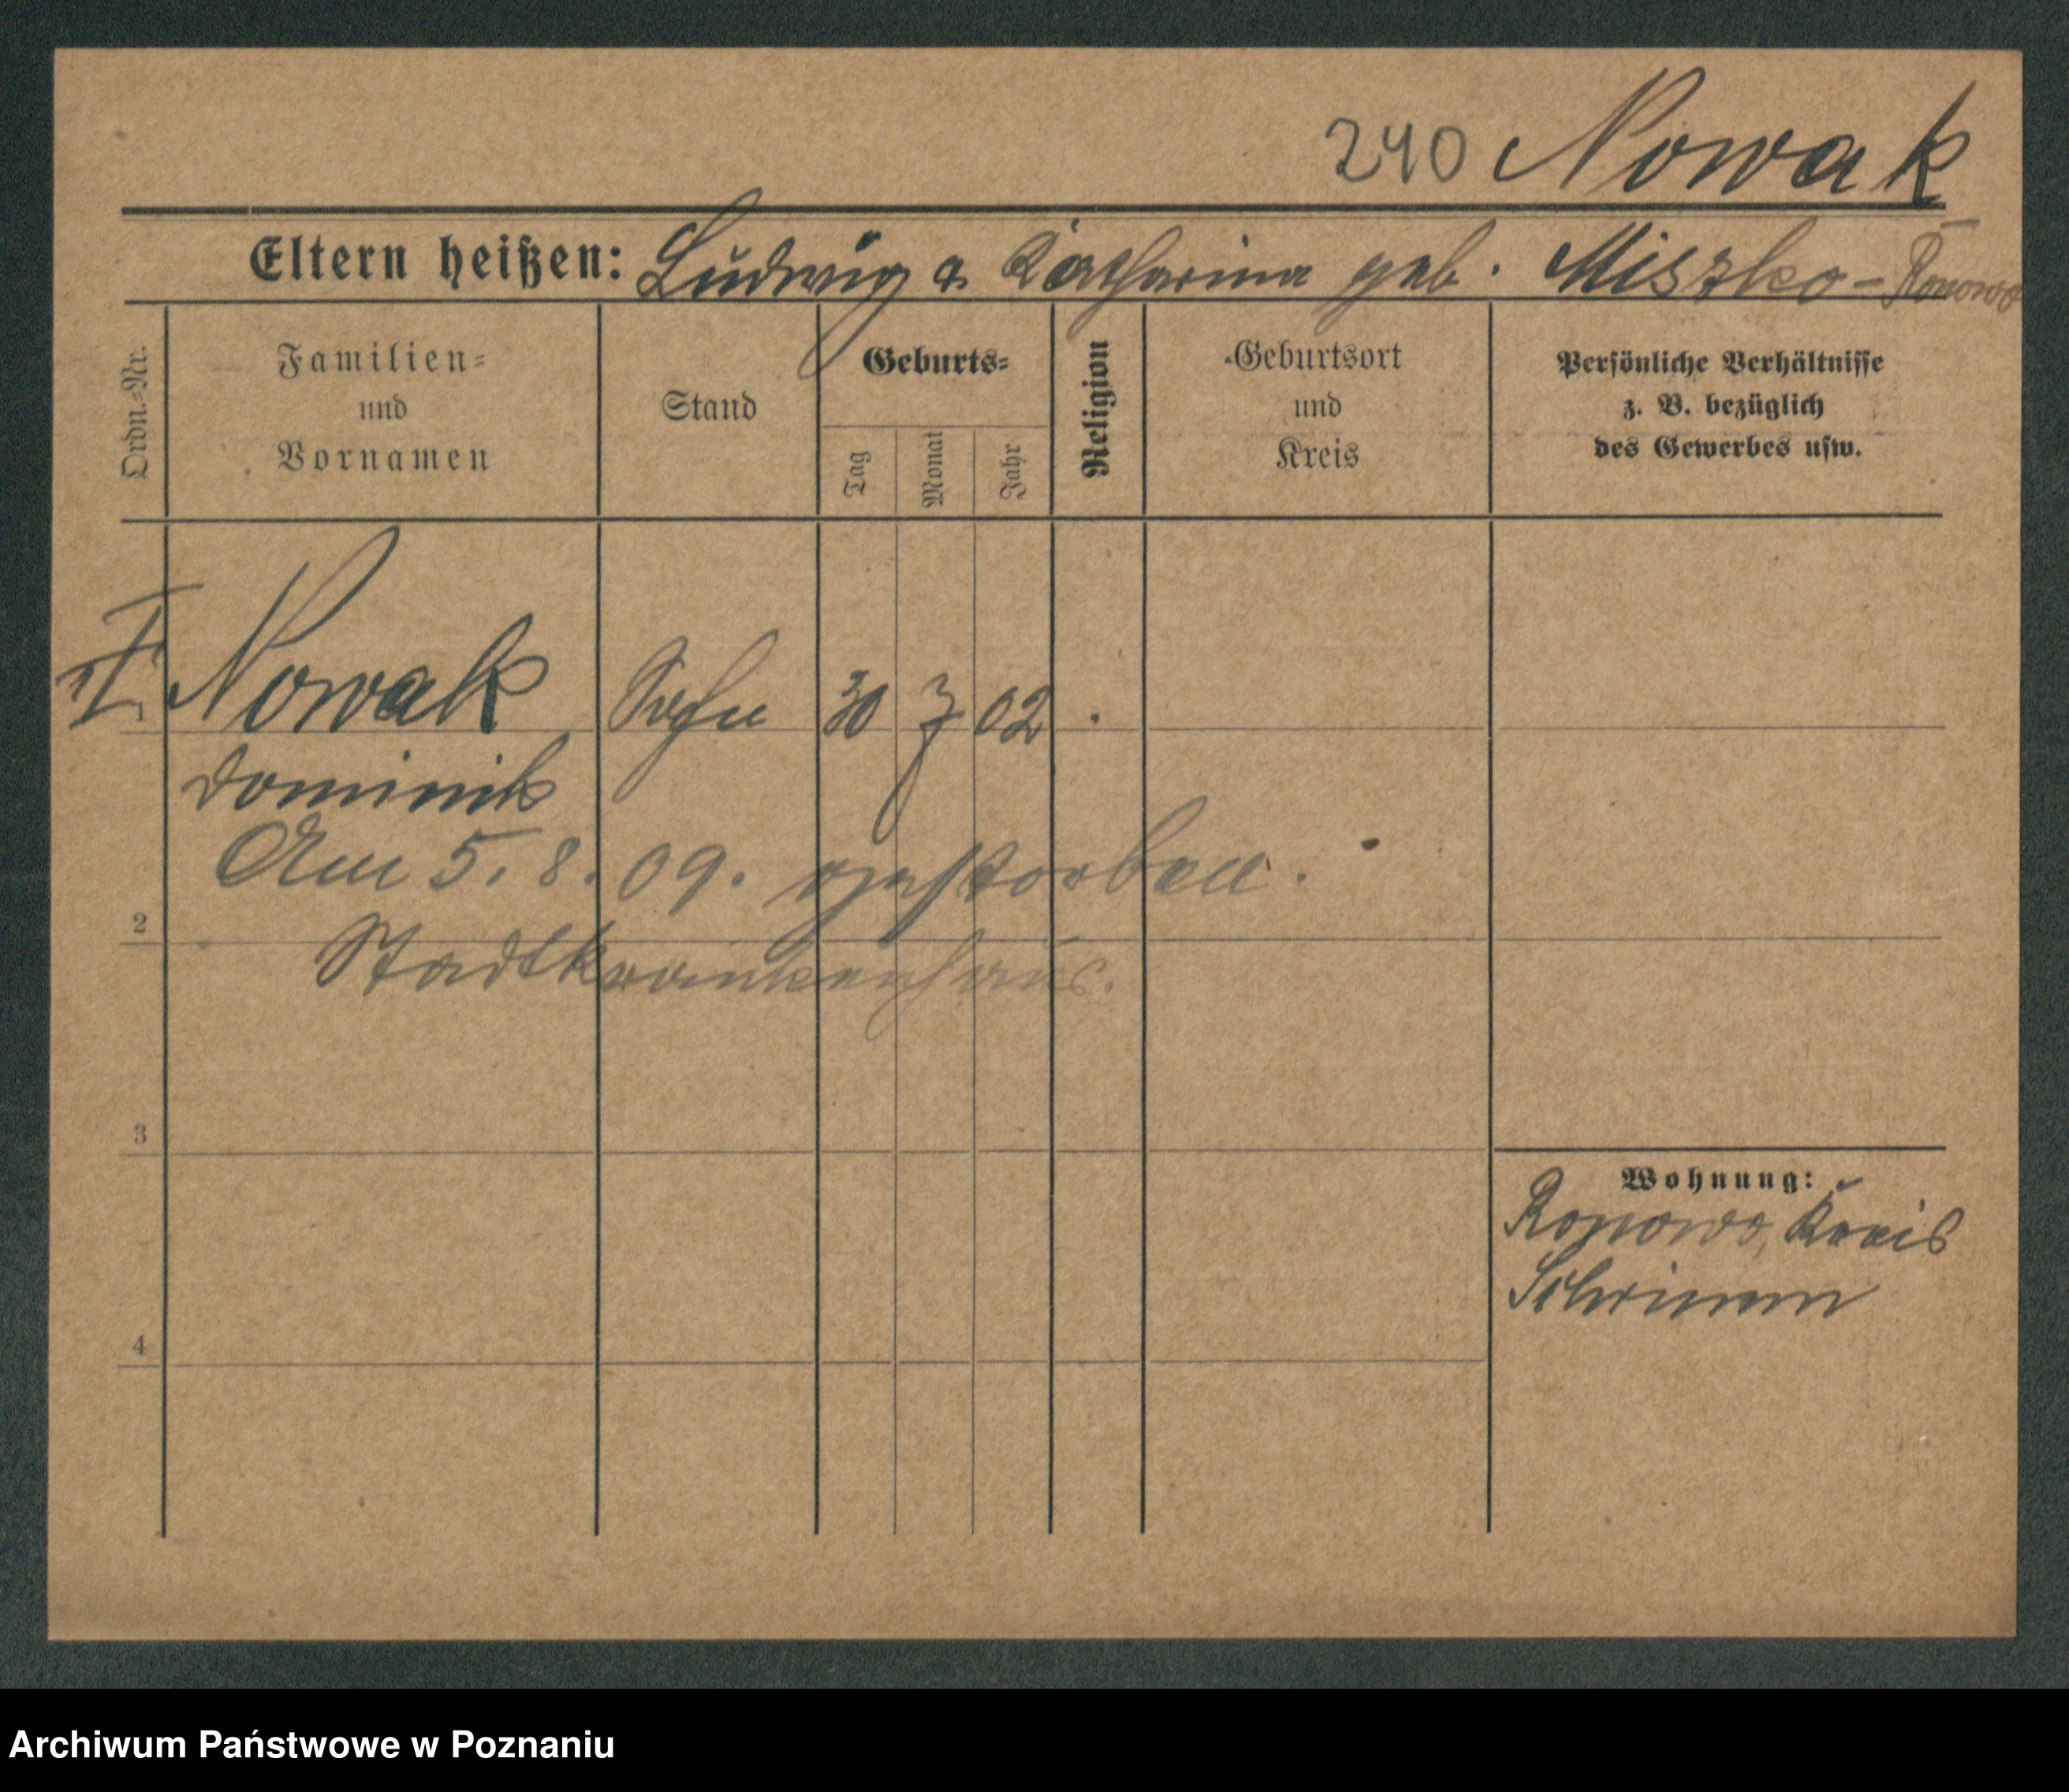 240 Nowak
Eltern heißen: Ludwig & Katharina geb. Miszko - Konowo
Ordn.-Nr.
Familien-
und
Vornamen
Stand
Geburts-
Tag
Monat
Jahr
Religion
Geburtsort
und
Kreis
Persönliche Verhältnisse
z. B. bezüglich
des Gewerbes usw.
Nowak Sohn 30 7 02
Dominik
Am 5. 8. 09. gestorben.
2
Stadtkrankenhaus.
3
Wohnung:
Konowo, Kreis
Schrimm
4
Archiwum Państwowe w Poznaniu